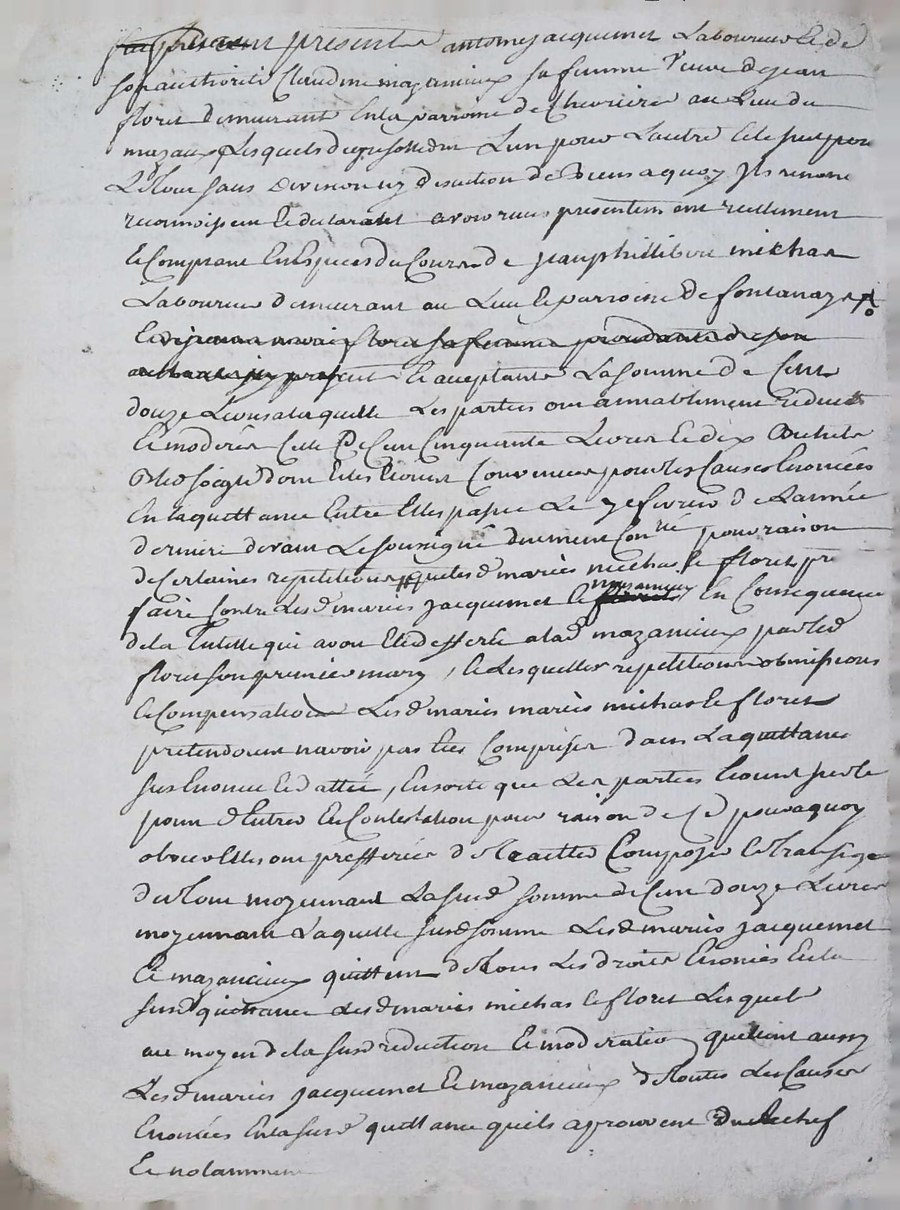 present antoine jacquemet Laboureur et de
son authorité Claudine mazancieux sa femme veuve de jean
floret demeurant En la parroisse de Chevrière au Lieu du
mazaux Lesquels de gré solid.nt L'un pour L'autre et le seul pour
Le Tout sans division ny discution de biens a quoy Ils renonc
reconnoissent et declarent avoir receu presentement reellement
et Comptant En Espèces du Cours de jean phillibert michas
Laboureur demeurant au Lieu et parroisse de fontanay
et de jeanne marie floret sa femme procedante de son
authorité present et acceptants La somme de Cent
douze Livres a laquelle Les parties ont amiablement reduit
et moderée Celle de Cent Cinquante Livres et dix bichets
bled soigle dont Elles Etoient Convenues pour les Causes Enoncées
En la quittance Entre Elles passée Le 7e fevrier de L'année
derniere devant Le soussigné duement Con.llé pour raison
de Certaines repetitions que les d. mariés michas et floret
faire Contre Les d. mariés jacquemet et mazancieux En Consequence
de la Tutelle qui avoit Eté defferée a la d. mazancieux par led.
floret son premier mary, et Lesquelles repetitions obmissions
et Compensations Les d. mariés mariés michas et floret
pretendoient n'avoir pas Eté Comprises dans La quittance
sus Enoncée et dattée, En sorte que Les parties Etoient sur le
point d'Entrer En Contestation pour raison de Ce pour a quoy
obvier Elles ont prefferées de Traitter Composer et Transiger
du Tout moyennant La sus d. somme de Cent douze Livres
moyennant Laquelle sus d. somme Les d. mariés jacquemet
et mazancieux quittent de Tous Les droits Enoncés En la
sus d. quittance Les d. mariés michas et floret Lesquels
au moyen de la sus d. reduction et moderation quittent aussy
Les d. mariés jacquemet et mazancieux de Toutes Les Causes
Enoncées En la sus d. quittance qu'ils approuvent derechef
et notamment